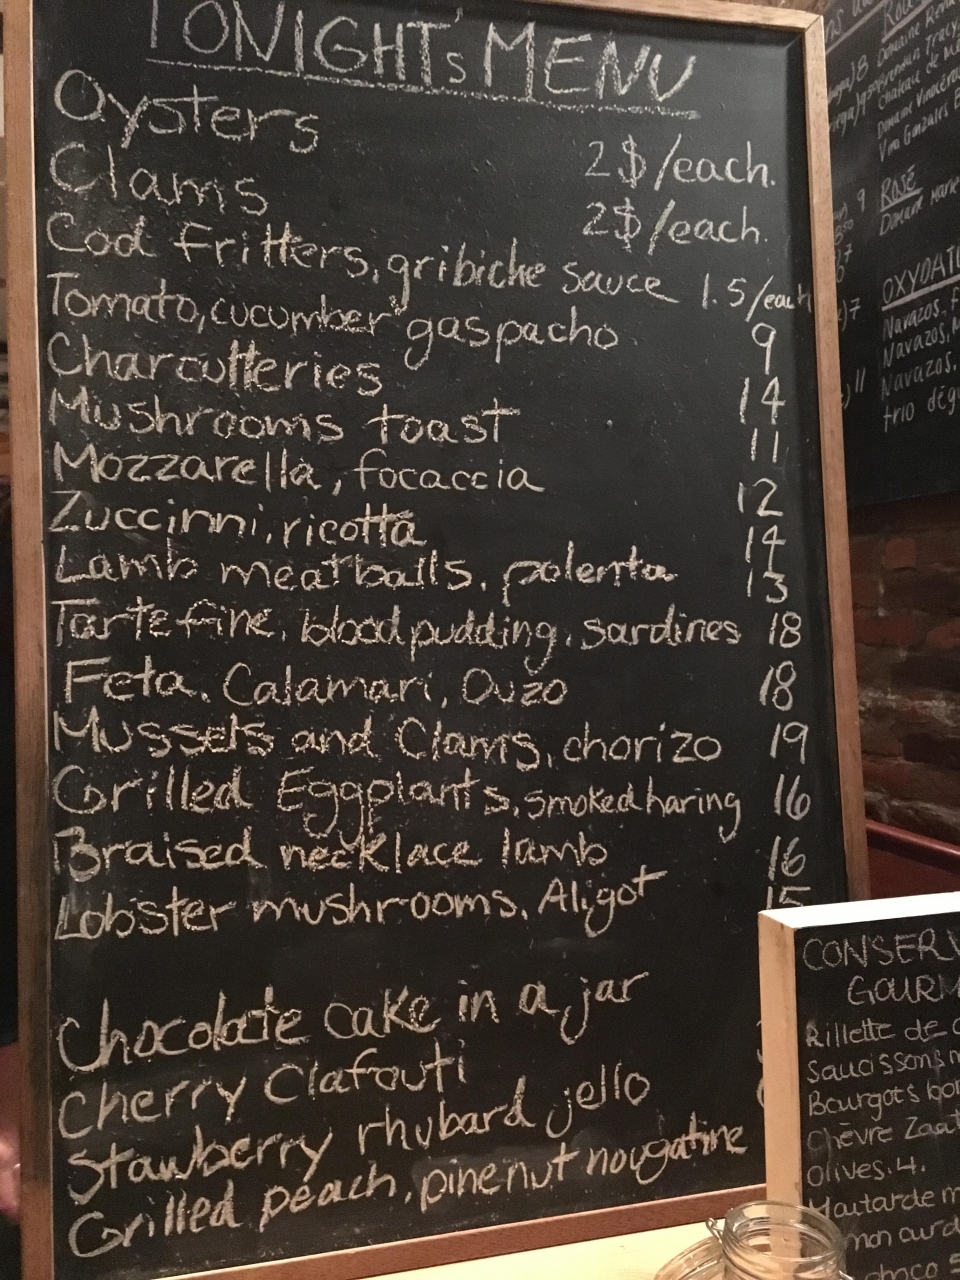 TONIGHT's MENU
Oysters 2$/each.
Clams 2$/each.
Cod fritters, gribiche sauce 1.5/each
Tomato, cucumber gaspacho 9
Charcutteries 14
Mushrooms toast 11
Mozzarella, focaccia 12
Zuccinni, ricotta 14
Lamb meatballs, polenta 13
Tarte fine, blood pudding, sardines 18
Feta, Calamari, Ouzo 18
Mussels and Clams, chorizo 19
Grilled Eggplants, smoked haring 16
Braised necklace lamb 16
Lobster mushrooms, Aligot 15
Chocolate cake in a jar
Cherry Clafouti
Stawberry rhubard jello
Grilled peach, pine nut nougatine
8
Château de
9
Rosé
Domaine Marie
7
OXYDATI
Navazos, F
Navazos, M
Navazos,
11
trio dégu
CONSERV
GOURM
Rillette de
Saucissons
Bourgots
Chèvre Zaat
Olives. 4.
Moutarde m
choco 5